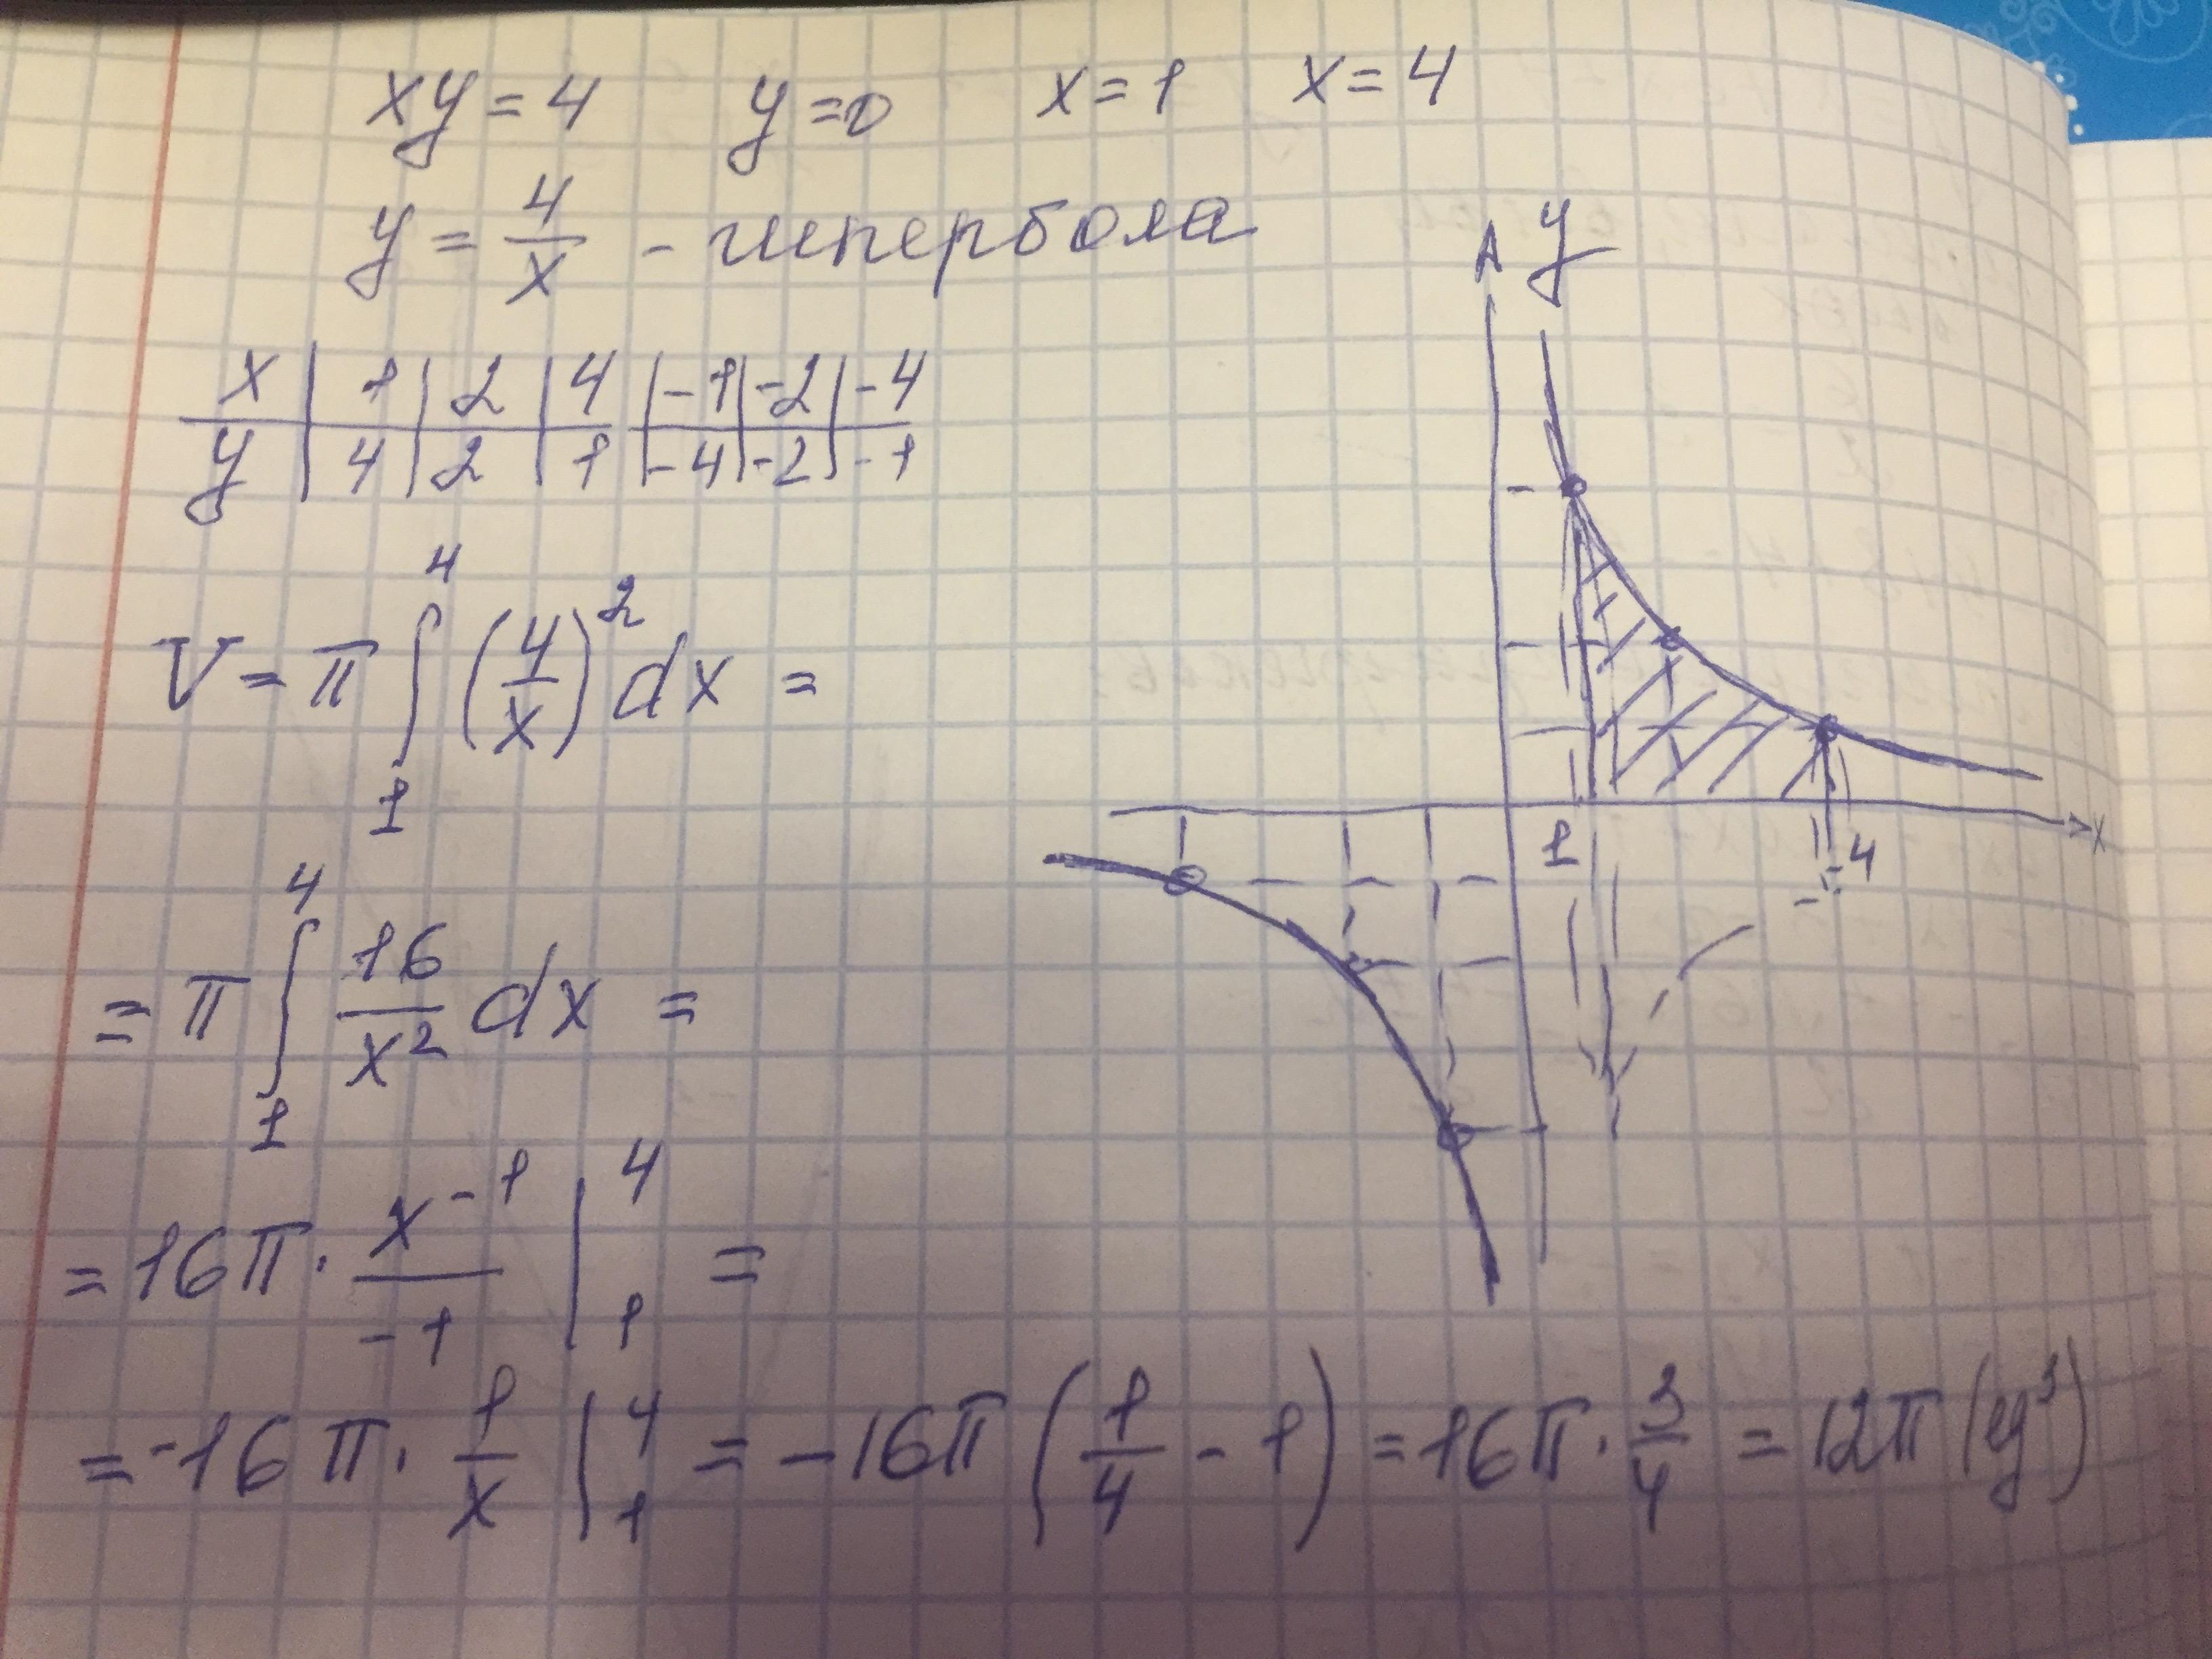 xy = 4 y = 0 x = 1 x = 4
y = 4/x - гипербола
x | 1 | 2 | 4 | -1 | -2 | -4
y | 4 | 2 | 1 | -4 | -2 | -1
V = π ∫₁⁴ (4/x)² dx =
= π ∫₁⁴ 16/x² dx =
= 16π · x⁻¹/-1 |₁⁴ =
= -16π · 1/x |₁⁴ = -16π (1/4 - 1) = 16π · 3/4 = 12π (ед³)
y
x
1
4